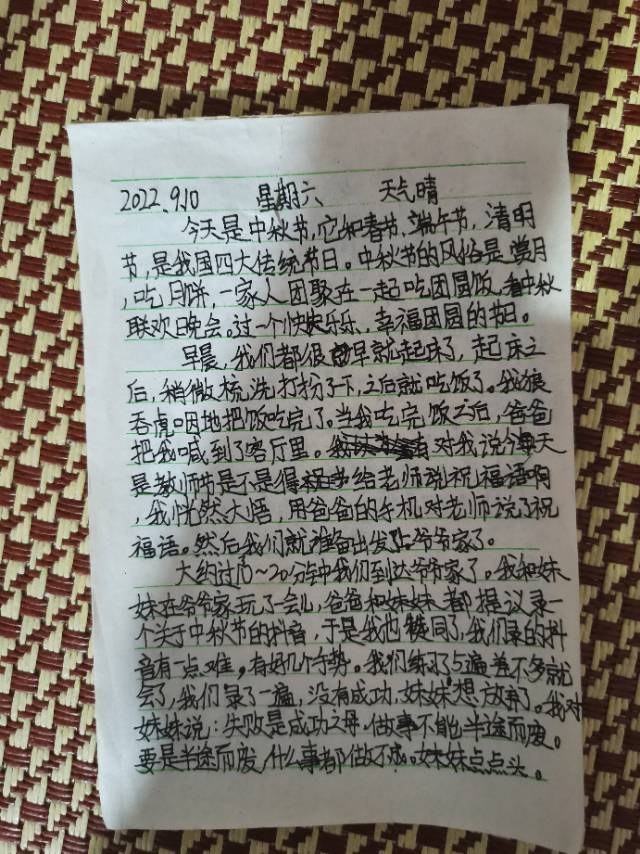 2022.9.10 星期六 天气晴
今天是中秋节,它和春节、端午节,清明
节,是我国四大传统节日。中秋节的风俗是赏月
,吃月饼,一家人团聚在一起吃团圆饭,看中秋
联欢晚会。过一个快乐乐,幸福团圆的节日。
早晨,我们都很早就起床了,起床之
后,稍微梳洗打扮了下,之后就吃饭了。我狼
吞虎咽地把饭吃完了。当我吃完饭之后,爸爸
把我喊到了客厅里。对我说今天
是教师节是不是得给老师说祝福语啊
,我恍然大悟,用爸爸的手机对老师说了祝
福语。然后我们就准备出发上爷爷家了。
大约过10~20分钟我们到达爷爷家了。我和妹
妹在爷爷家玩了会儿,爸爸和妹妹都提议录一
个关于中秋节的抖音,于是我也赞同了,我们录的抖
音有一点难,有好几个手势。我们练习了5遍差不多就
会了,我们录了一遍,没有成功,妹妹想放弃了。我对
妹妹说:失败是成功之母,做事不能半途而废。
要是半途而废,什么事都做不成。妹妹点点头。